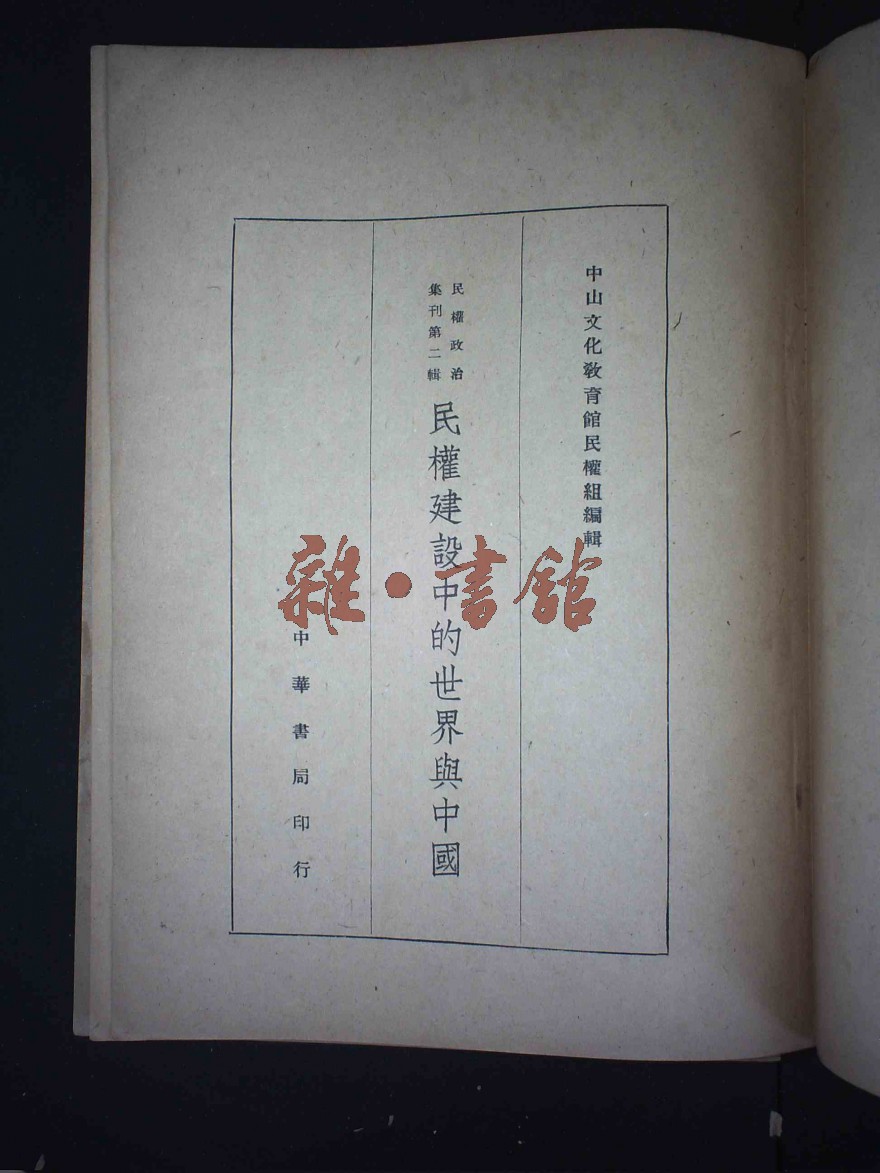 中山文化敎育館民權組編輯
民權政治
集刊第二輯
民權建設中的世界與中國
中華書局印行
雜·書館